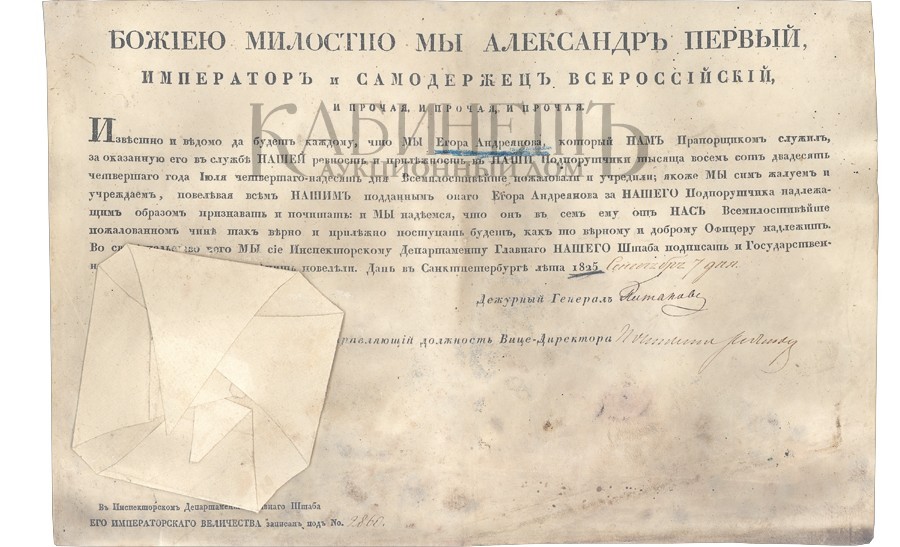 БОЖІЕЮ МИЛОСТІЮ МЫ АЛЕКСАНДРЪ ПЕРВЫЙ,
ИМПЕРАТОРЪ и САМОДЕРЖЕЦЪ ВСЕРОССІЙСКІЙ,
И ПРОЧАЯ, И ПРОЧАЯ, И ПРОЧАЯ.
КАБИНЕТЪ
АУКЦИОННЫЙ ДОМ
Извѣстно и вѣдомо да будетъ каждому, что МЫ Егора Андреянова, который НАМЪ Прапорщикомъ служилъ,
за оказанную его въ службѣ НАШЕЙ ревность и прилѣжность въ НАШИ Подпорутчики тысяща восемь сотъ двадесять
четвертаго года Іюля четвертаго-надесять дня Всемилостивѣйше пожаловали и учредили; якоже МЫ симъ жалуемъ и
учреждаемъ, повелѣвая всѣмъ НАШИМЪ подданнымъ онаго Егора Андреянова за НАШЕГО Подпорутчика надлежа-
щимъ образомъ признавать и почитать: и МЫ надѣемся, что онъ въ семъ ему отъ НАСЪ Всемилостивѣйше
пожалованномъ чинѣ такъ вѣрно и прилѣжно поступать будетъ, какъ то вѣрному и доброму Офицеру надлежитъ.
Во МЫ сіе Инспекторскому Департаменту Главнаго НАШЕГО Штаба подписать и Государствен-
повелѣли. Данъ въ Санктпетербургѣ лѣта 1825 Сентября 7 дня.
Дежурный Генералъ Потаповъ
должность Вице-Директора
Въ Инспекторскомъ Штаба
ЕГО ИМПЕРАТОРСКАГО ВЕЛИЧЕСТВА записанъ подъ No.